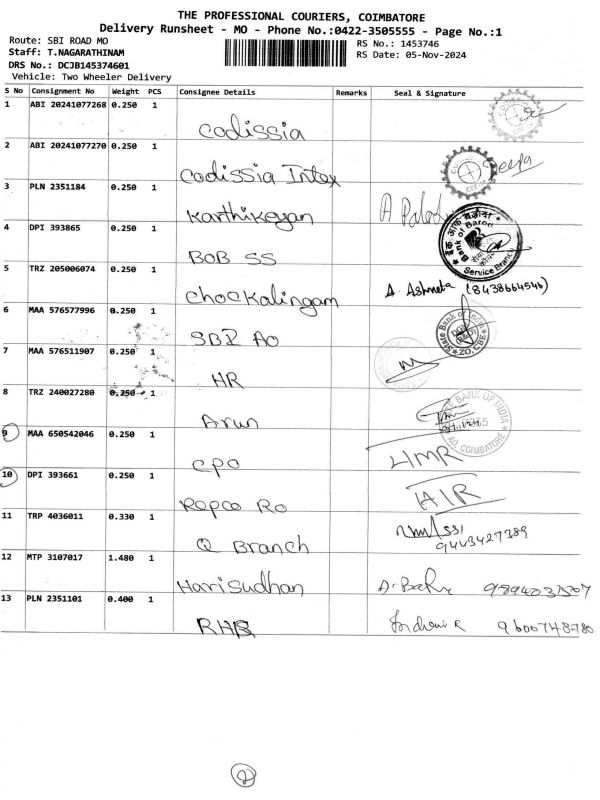 THE PROFESSIONAL COURIERS, COIMBATORE
Delivery Runsheet - MO - Phone No.:0422-3505555 - Page No.:1
Route: SBI ROAD MO RS No.: 1453746
Staff: T.NAGARATHINAM RS Date: 05-Nov-2024
DRS No.: DCJB145374601
Vehicle: Two Wheeler Delivery
S No Consignment No Weight PCS Consignee Details Remarks Seal & Signature
1 ABI 20241077268 0.250 1
Codissia
2 ABI 20241077270 0.250 1
Codissia Intex Deepa
3 PLN 2351184 0.250 1
Karthikeyan
4 DPI 393865 0.250 1
BOB SS
Bank of Baroda
Service Branch
5 TRZ 205006074 0.250 1
Chockalingam A. Ashmeta (8438664546)
6 MAA 576577996 0.250 1
SBI AO
State Bank of India
ZO, CBE
7 MAA 576511907 0.250 1
HR
8 TRZ 240027280 0.250 1
Arun
BANK OF INDIA
AO, COIMBATORE
9 MAA 650542046 0.250 1
CPO HMR
10 DPI 393661 0.250 1
Repco Ro HIR
11 TRP 4036011 0.330 1
Q Branch 9443427389
12 MTP 3107017 1.480 1
Harrisudhan
13 PLN 2351101 0.400 1
RHB 9600748780
2